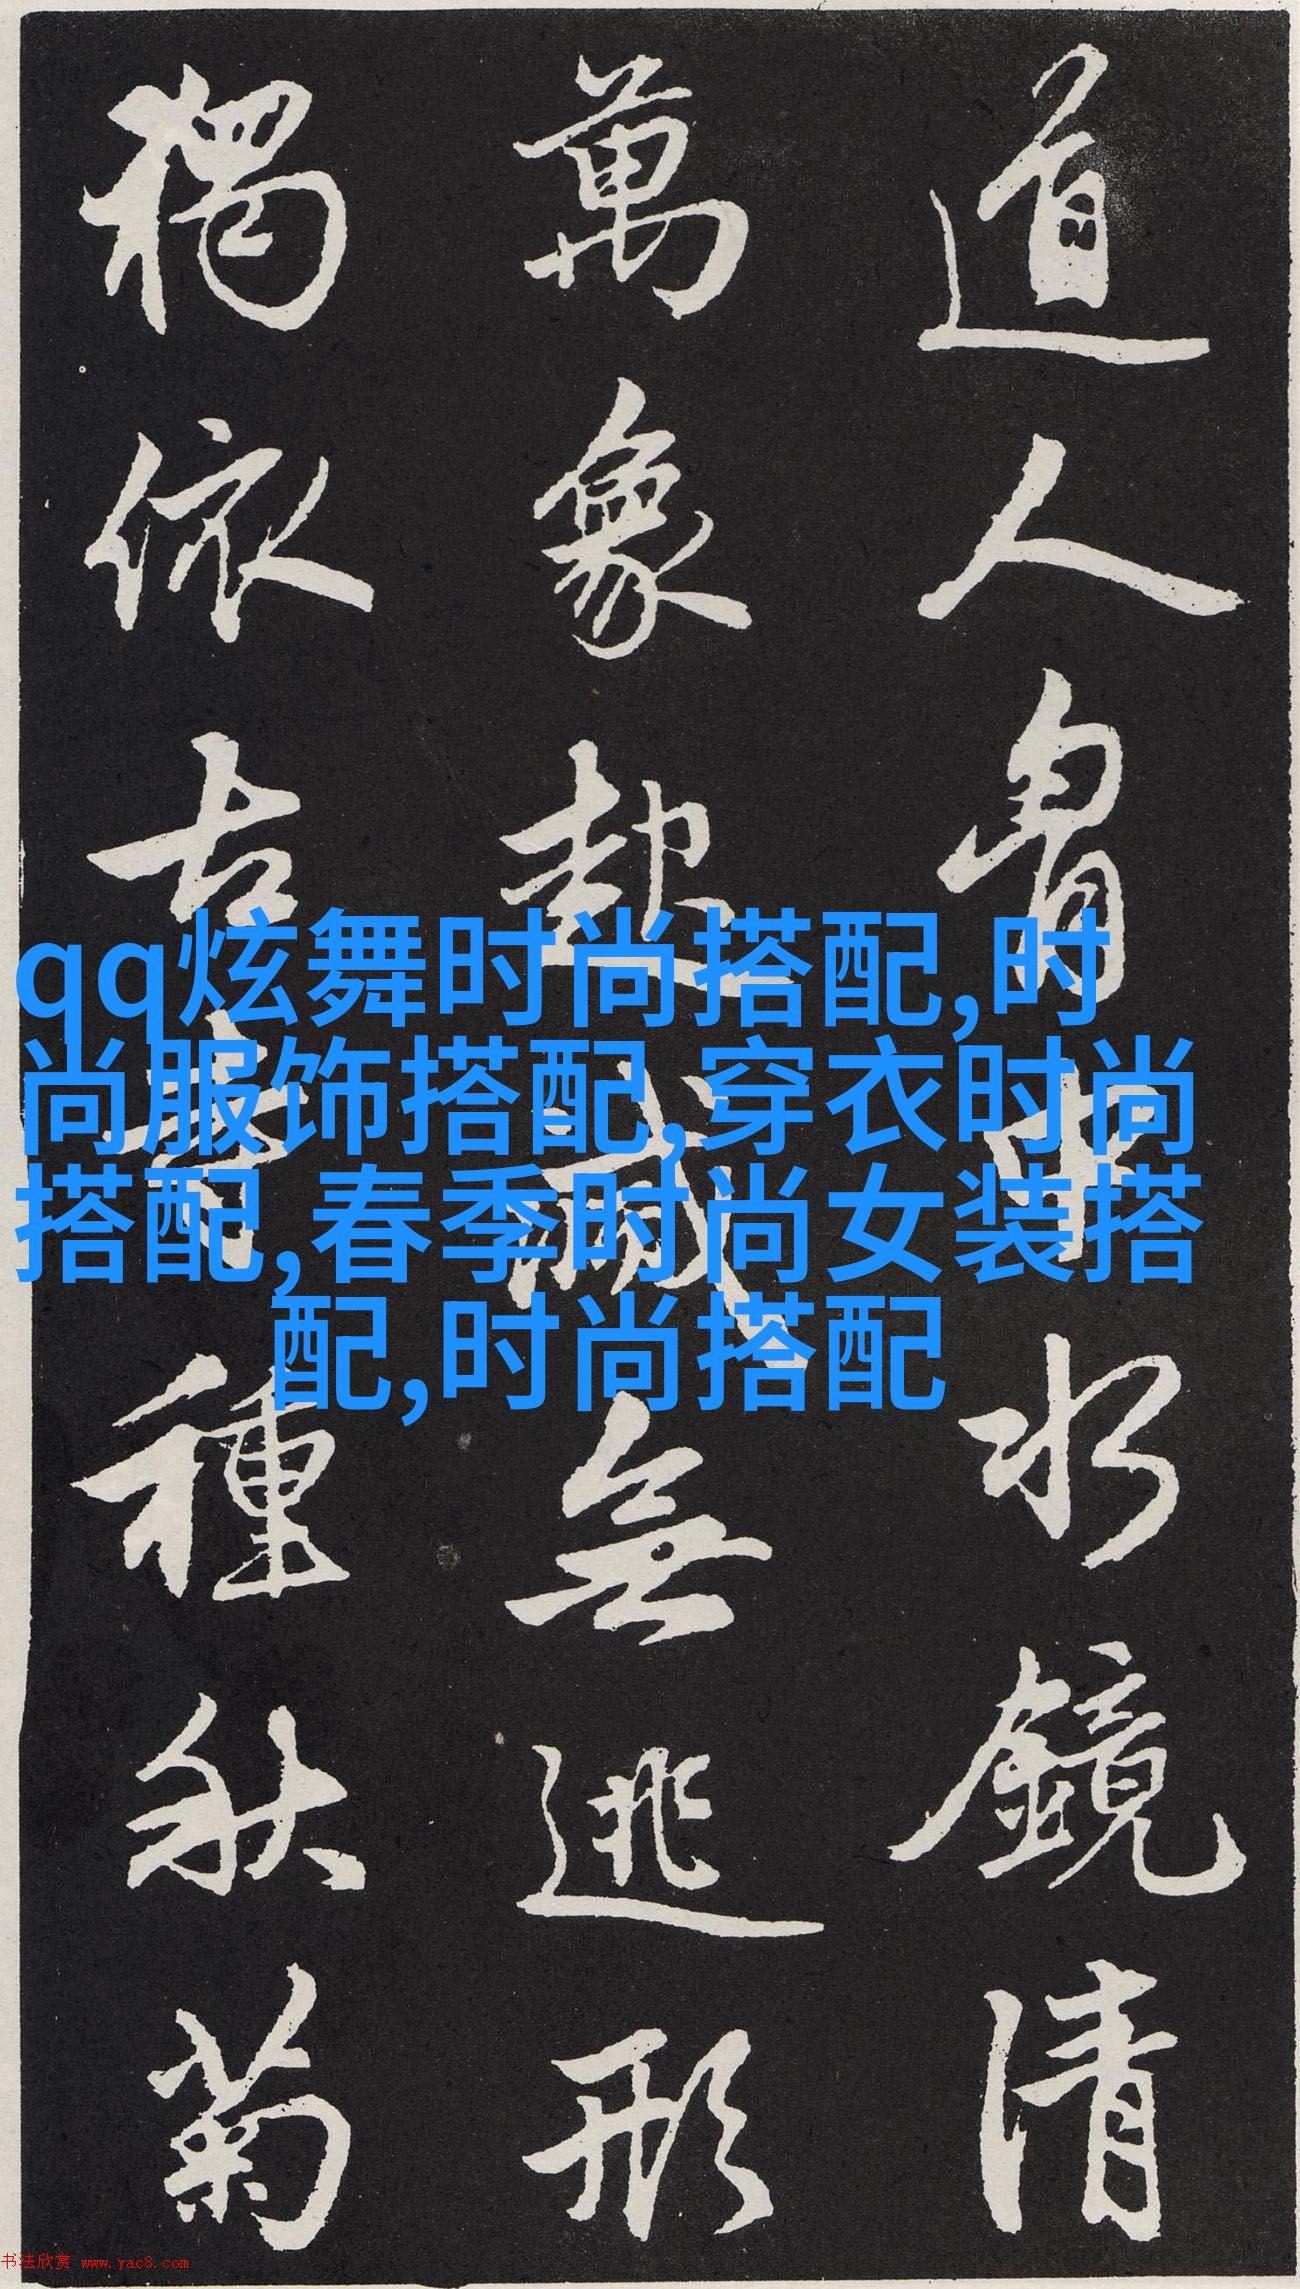 道人胷中水鏡清
萬象起滅無逃形
獨依古寺種秋菊
qq炫舞时尚搭配,时
尚服饰搭配,穿衣时尚
搭配,春季时尚女装搭
配,时尚搭配
书法欣赏 www.yac8.com